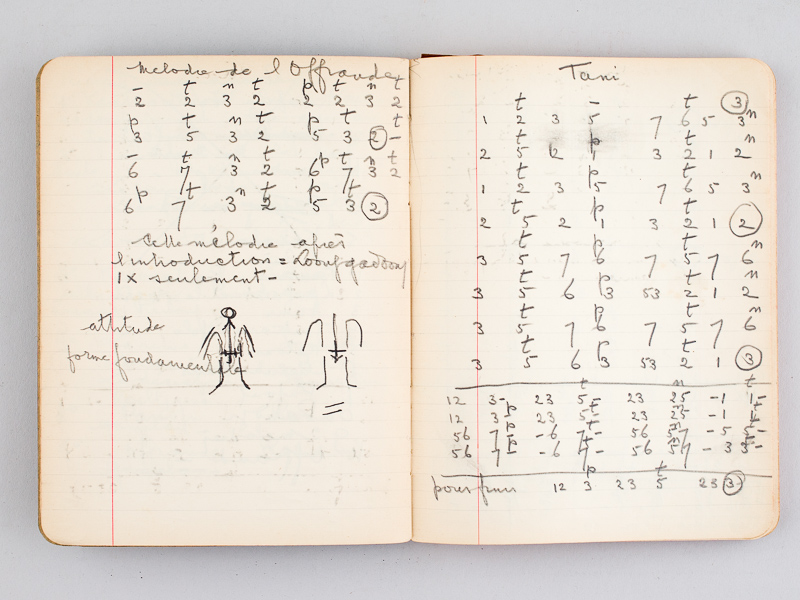 Melodie de l'Offrande
- t n t p t n t
2 2 3 2 2 2 3 2
p t n t p t
3 5 3 2 5 3 2 -
- t n t p t n t
6 7 3 2 6 7 3 2
p t n t p t
6 7 3 2 5 3 2
Cette mélodie après
l'introduction =
1x seulement -
attitude
forme fondamentale
Tani
t - t 3
1 2 3 5 7 6 5 3 n
t p t
2 5 2 1 3 2 1 2
t p t
1 2 3 5 7 6 5 3 n
t p t
2 5 2 1 3 2 1 2
t p t n
3 5 7 6 7 5 7 6
t p t n
3 5 6 3 53 2 1 2
t p t n
3 5 7 6 7 5 7 6
t p t
3 5 6 3 53 2 1 3
t n t
12 3- 23 5- 23 25 -1 1-
12 3 23 5- 23 25 -1 1-
56 7 -6 7 56 57 -5 5-
56 7 -6 7- 56 57 -3 3-
p t
pour finir 12 3 23 5 23 3-